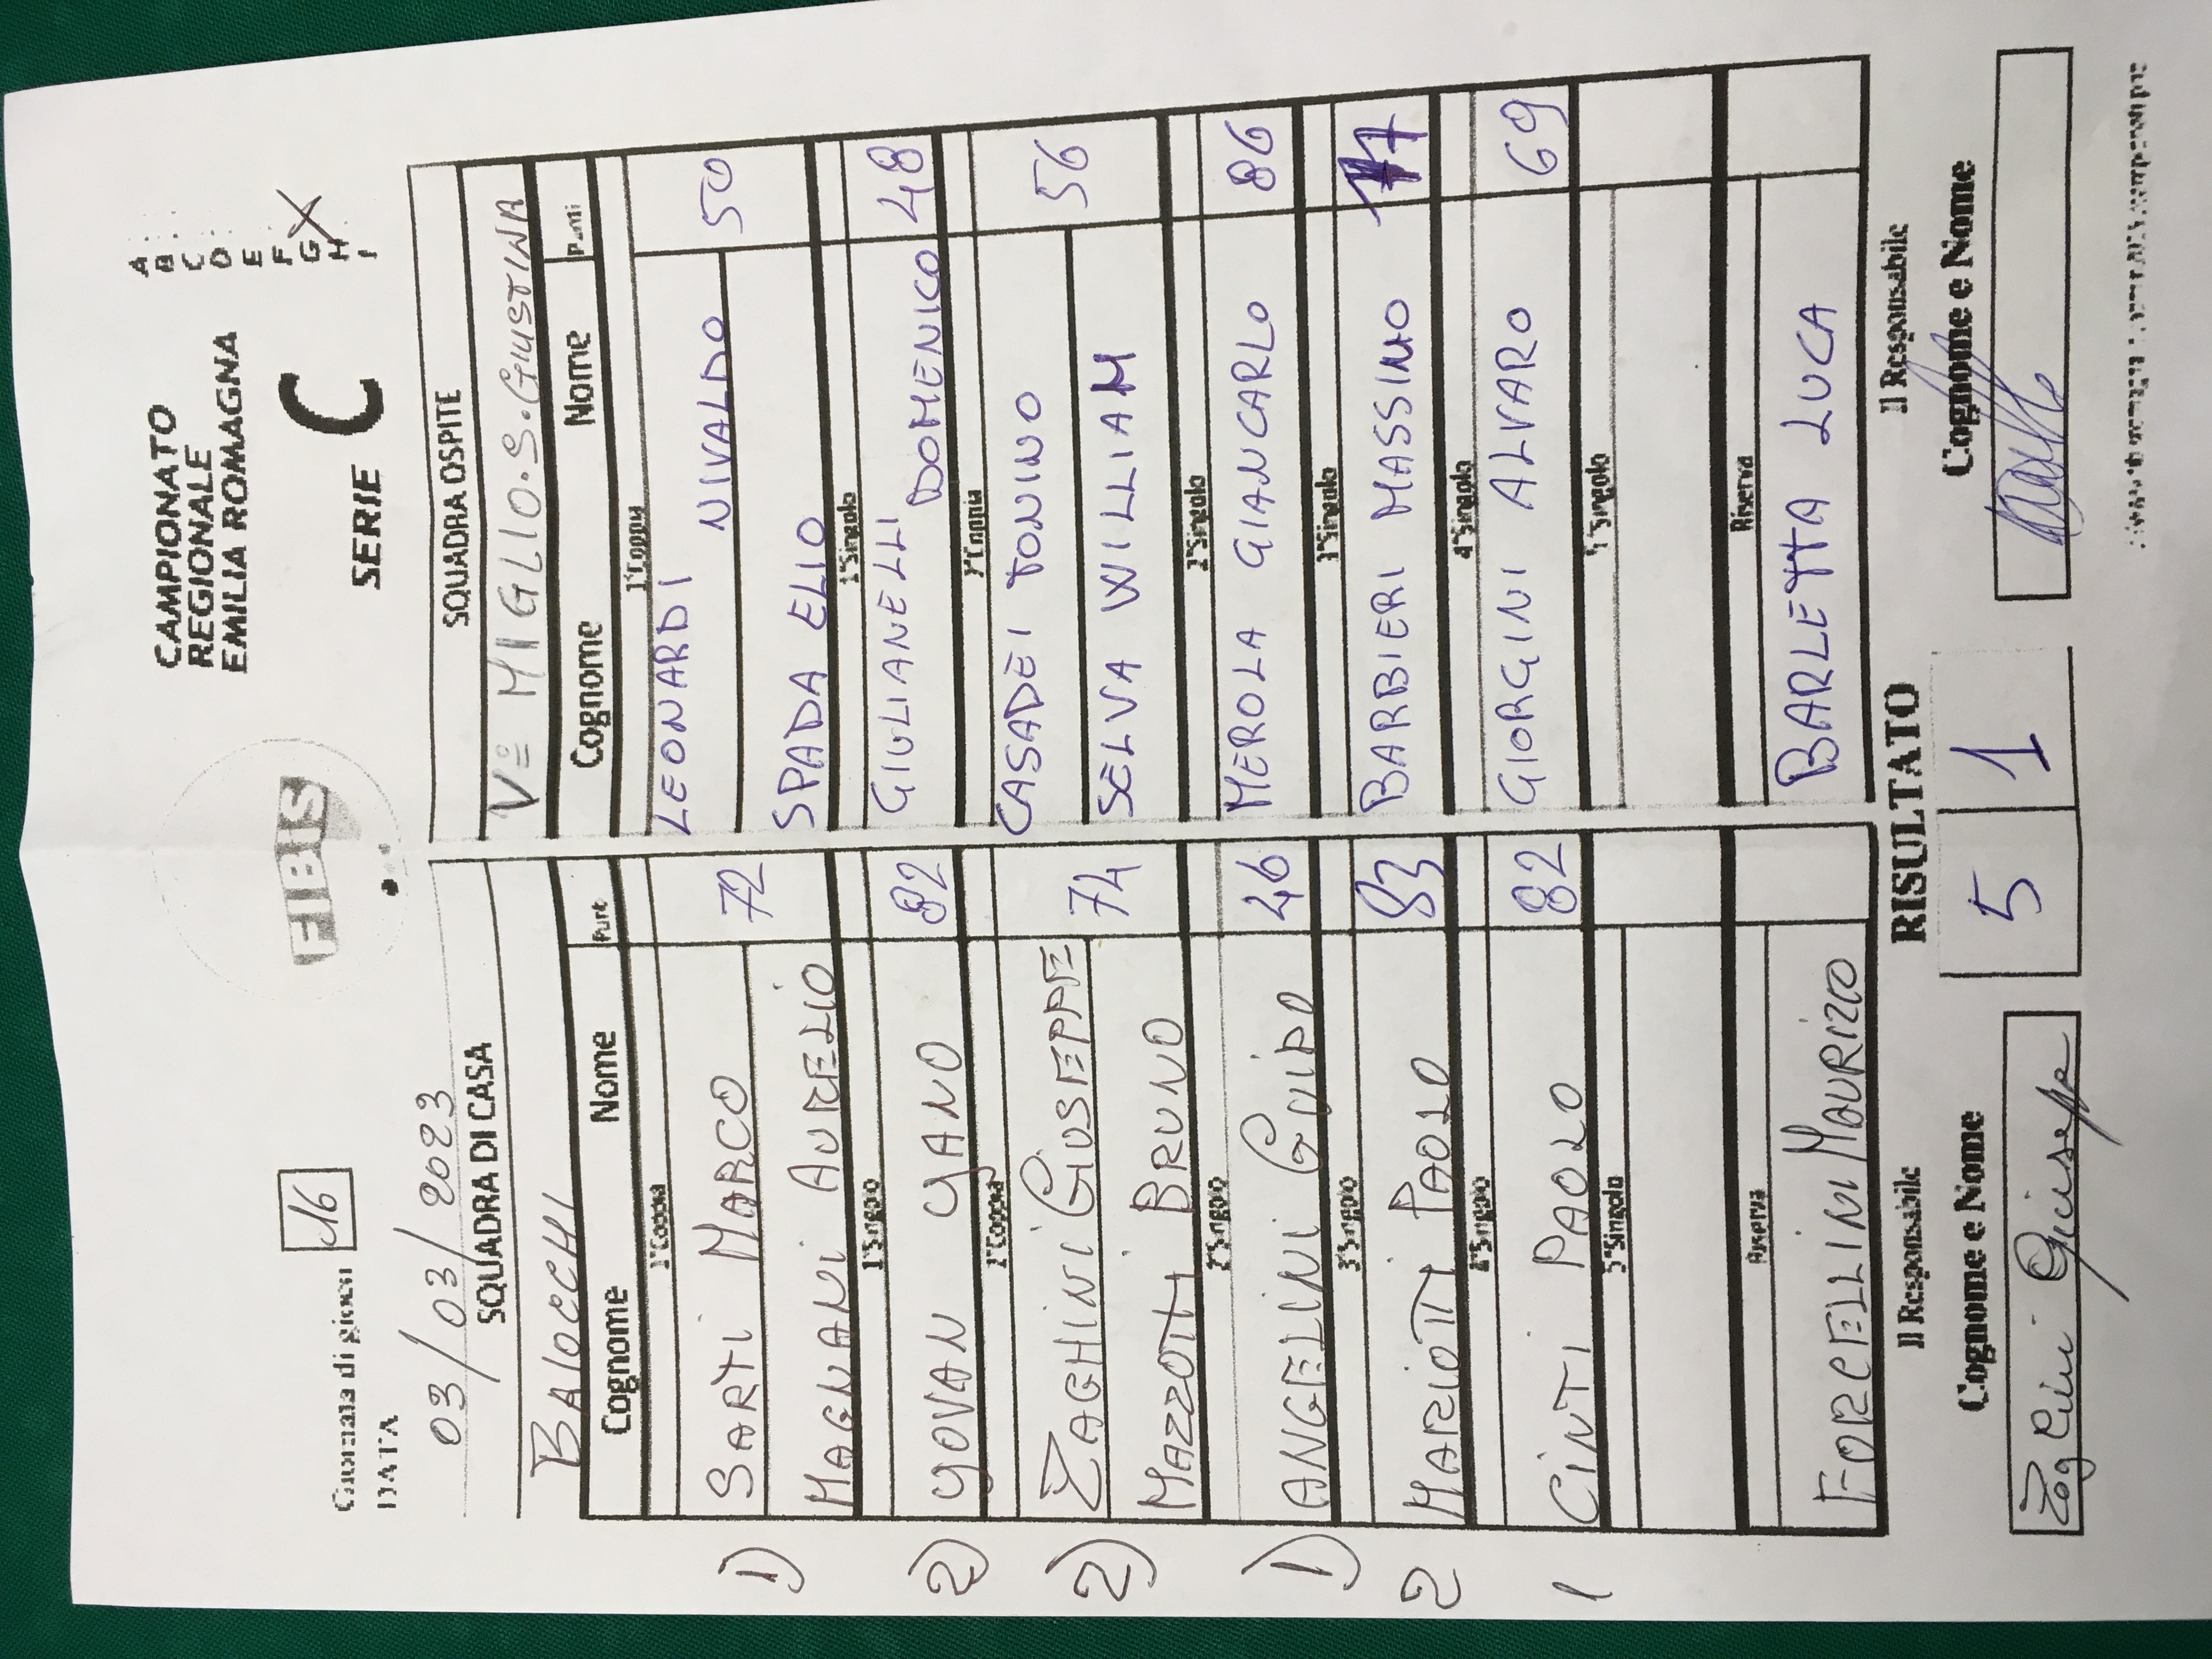 Giornata di gioco 16
DATA
03/03/2023
FIBIS
CAMPIONATO
REGIONALE
EMILIA ROMAGNA
SERIE C
A
B
C
D
E
F
G X
H
I
SQUADRA DI CASA
BAIOCCHI
Cognome Nome Punti
1° Coppia
1) SARTI MARCO 72
MAGNANI AURELIO
1° Singolo
2) YOVAN YANO 82
2° Coppia
2) ZAGHINI GIUSEPPE 74
MAZZOTTI BRUNO
2° Singolo
1) ANGELINI GUIDO 46
3° Singolo
2 MARIOTTI PAOLO 83
4° Singolo
1 CINTI PAOLO 82
5° Singolo
Riserva
FORCELLINI MAURIZIO
SQUADRA OSPITE
V° MIGLIO.S.GIUSTINA
Cognome Nome Punti
1° Coppia
LEONARDI NIVALDO 50
SPADA ELIO
1° Singolo
GIULIANELLI DOMENICO 48
2° Coppia
CASADEI TONINO 56
SELVA WILLIAM
2° Singolo
MEROLA GIANCARLO 86
3° Singolo
BARBIERI MASSIMO
4° Singolo
GIORGINI ALVARO 69
5° Singolo
Riserva
BARLETTA LUCA
Il Responsabile
Cognome e Nome
Zaghini Giuseppe
RISULTATO
5 1
Il Responsabile
Cognome e Nome